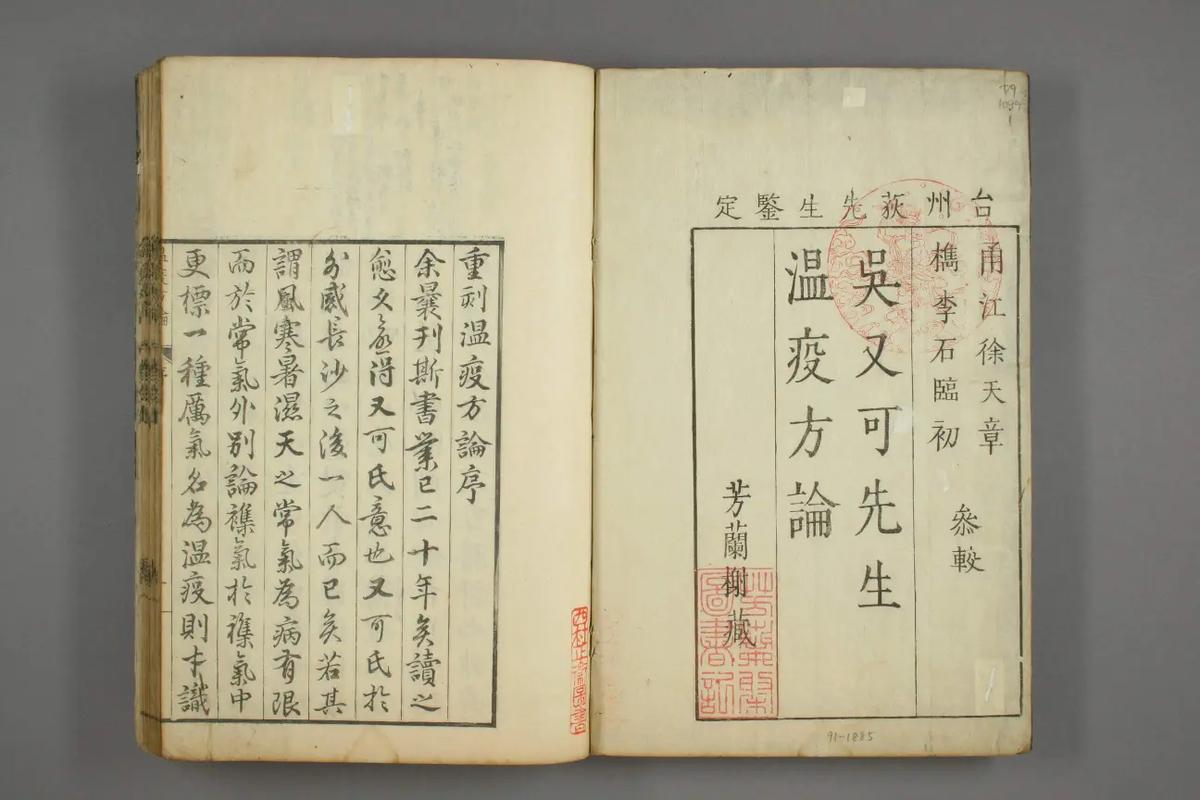 台州荻先生鑒定
甬江徐天章
檇李石臨初
叅較
吳又可先生
温疫方論
芳蘭榭藏
芳蘭榭
圖書記
91-1885
重刻温疫方論序
余曩刊斯書業已二十年矣讀之
愈久愈得又可氏意也又可氏於
外感長沙之後一人而已矣若其
謂風寒暑濕天之常氣為病有限
而於常氣外別論襍氣於襍氣中
更標一種厲氣名為温疫則才識